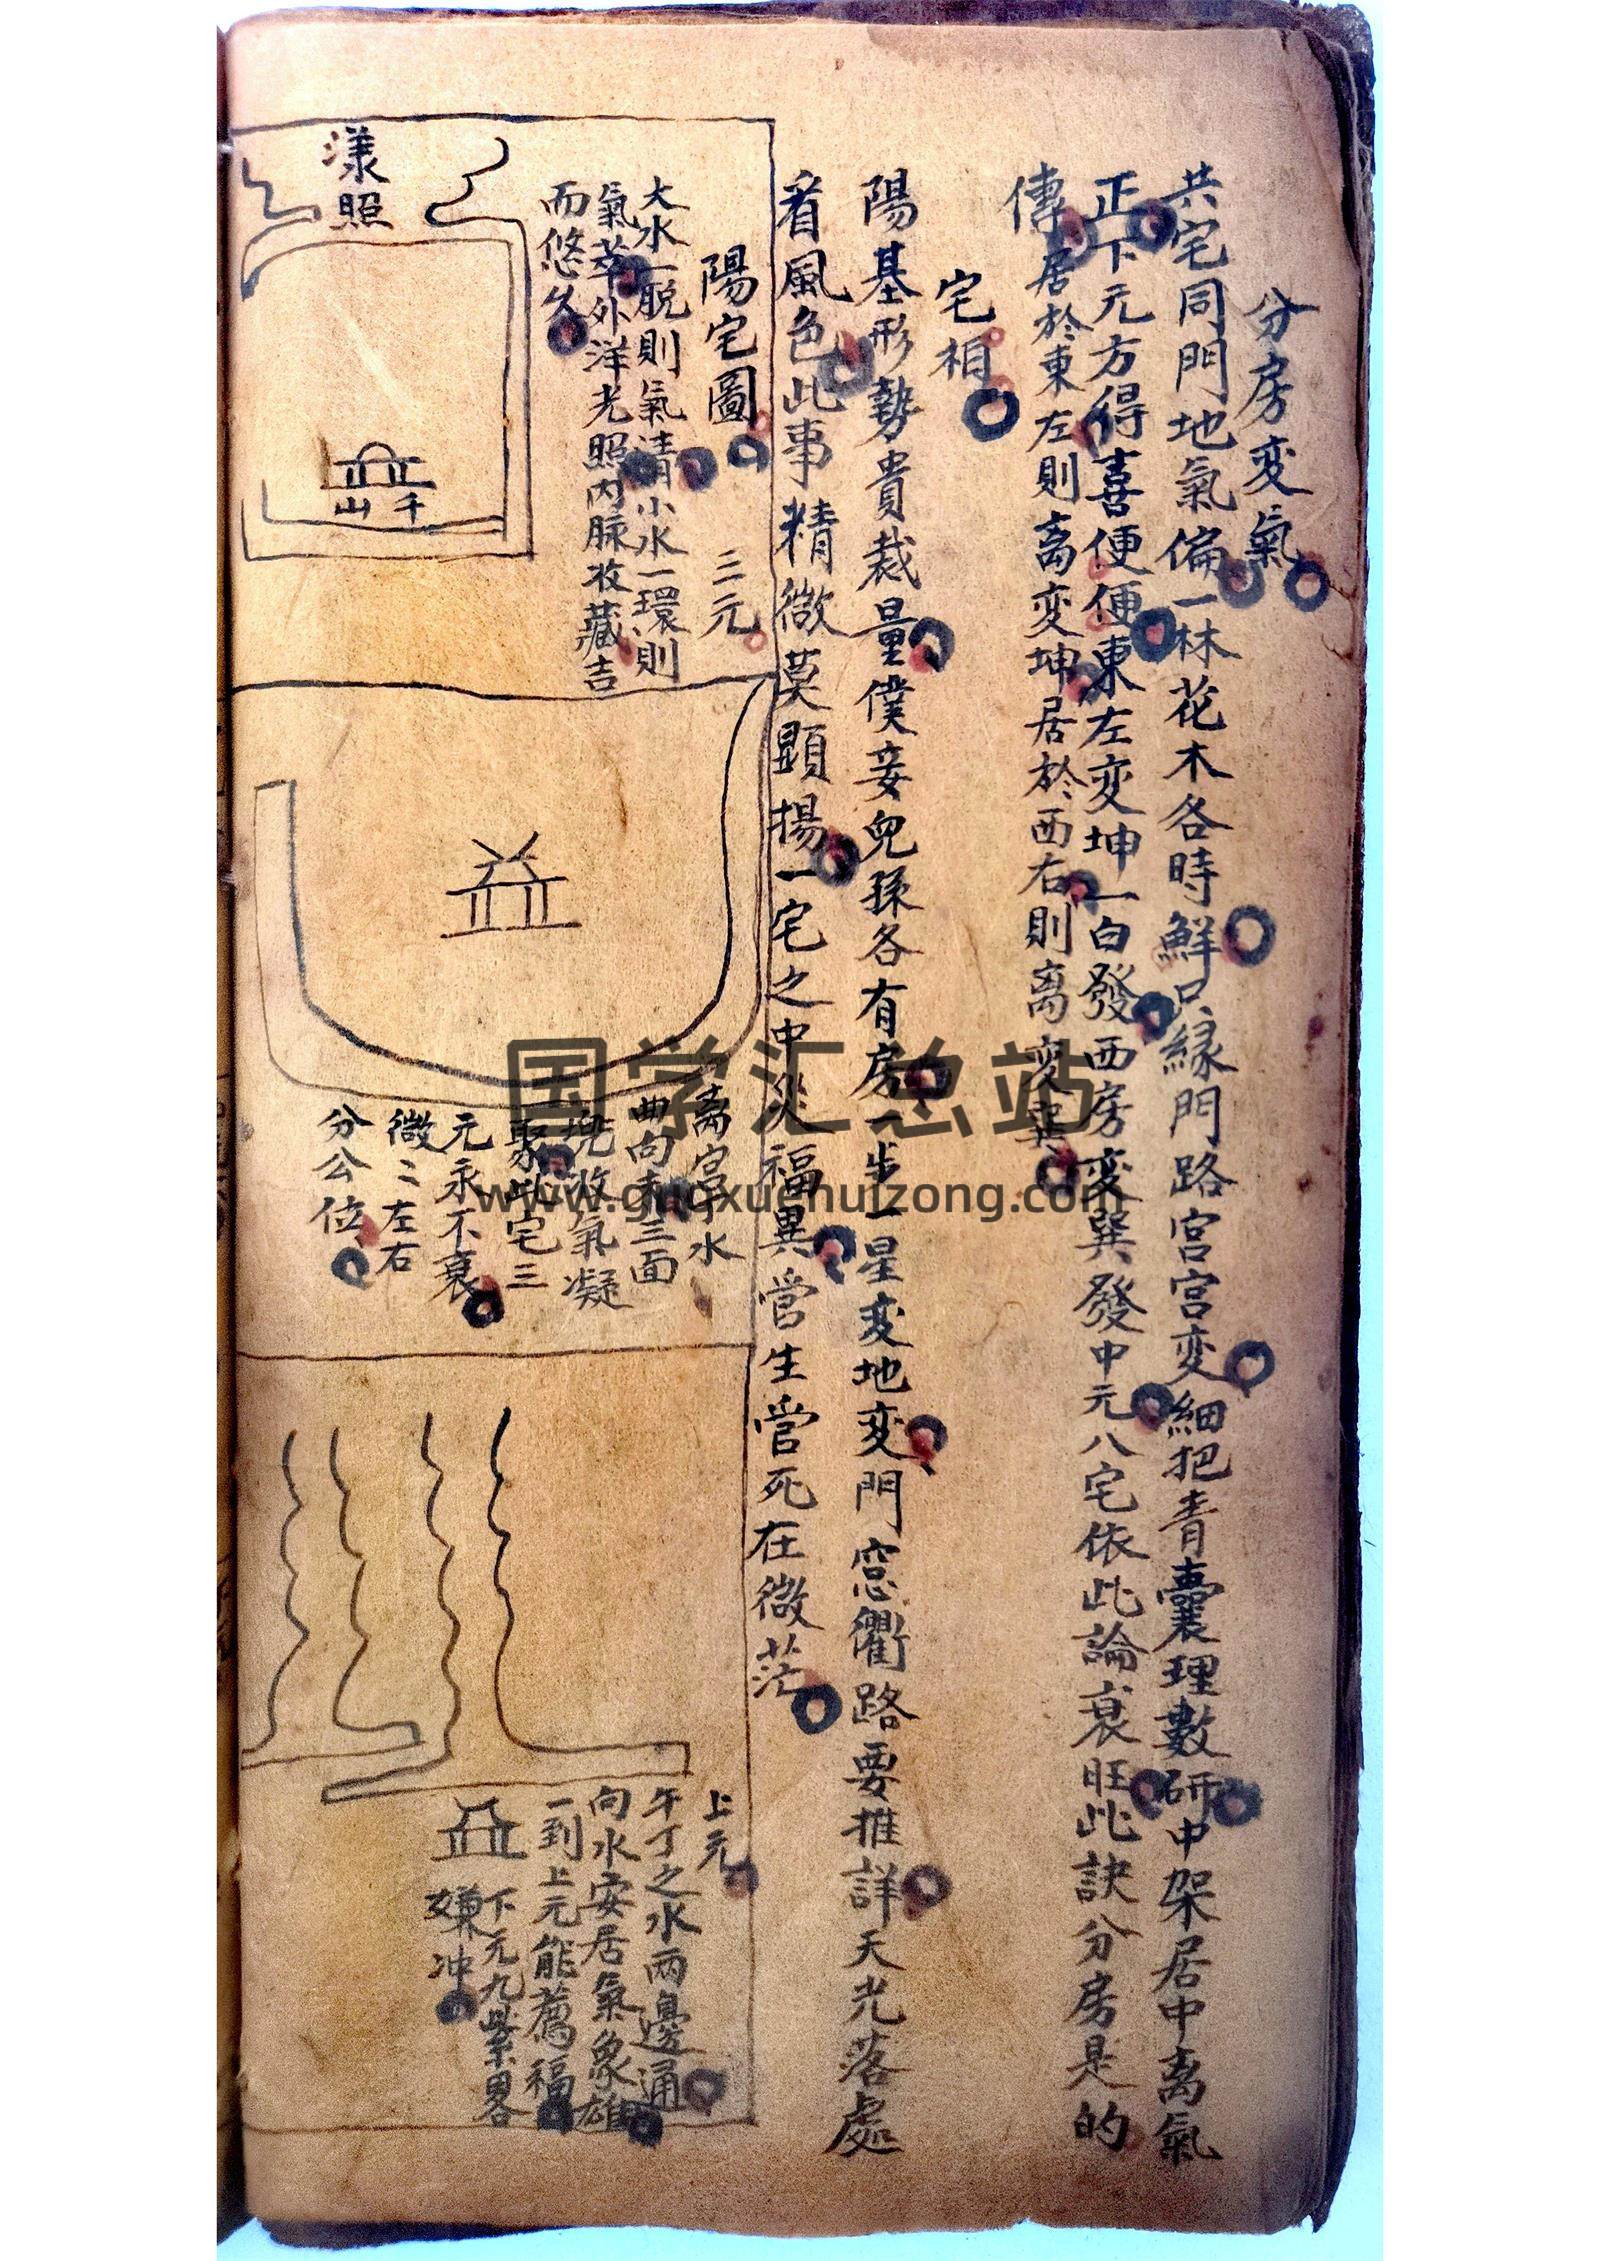 分房变氣
共宅同門地氣偏一林花木各時鮮只緣門路宮宮变細把青囊理數研中架居中离氣
正下元方得喜便便東左变坤一白發西房变巽發中元八宅依此論衰旺此訣分房是的
傳居於東左則离变坤居於西右則离变巽
宅相
陽基形勢貴裁量僕妾兒孫各有房一步一星变地变門窓衢路要推詳天光落處
看風色此事精微莫顯揚一宅之中災福異管生管死在微茫
陽宅圖
三元
大水一脱則氣清小水一環則
氣萃外洋光照內脉收藏吉
而悠久
漾照
千
山
离宮水
曲向来三面
兜收氣凝
聚此宅三
元永不衰
微〻左右
分公位
上元
午丁之水兩邊通
向水安居氣象雄
一到上元能薦福
下元九紫畧
嫌冲
国学汇总站
www.guoxuehuizong.com